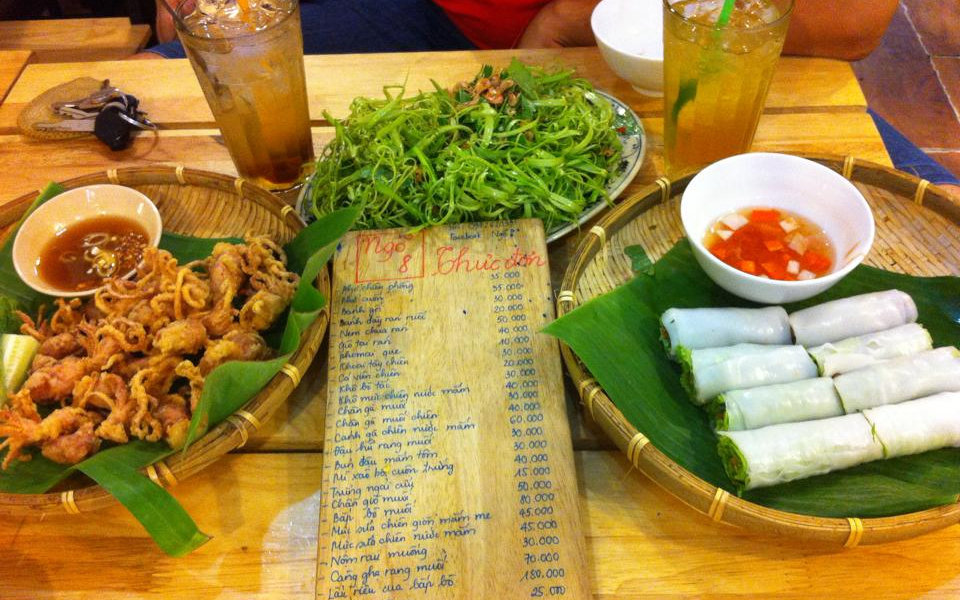 Facebook Ngõ 8
Ngõ 8 Thực đơn
- Phở chiên phồng 35.000
- Phở cuốn 35.000
- Bánh gối 30.000
- Bánh dầy rán ruốc 20.000
- Nem chua rán 50.000
- Giò tai rán 40.000
- Phomai que 10.000
- Khoai tây chiên 30.000
- Cá viên chiên 20.000
- Khô bò tái 30.000
- Khô mực chiên nước mắm 40.000
- Chân gà muối 30.000
- Chân gà muối chiên 40.000
- Cánh gà chiên nước mắm 60.000
- Đậu hũ rang muối 30.000
- Bún đậu mắm tôm 30.000
- Mì xào bò cuộn trứng 40.000
- Trứng ngải cứu 15.000
- Chân giò muối 50.000
- Bắp bò muối 80.000
- Mực sữa chiên giòn mắm me 45.000
- Mực sữa chiên nước mắm 45.000
- Nộm rau muống 30.000
- Càng ghẹ rang muối 70.000
- Lẩu riêu cua bắp bò 180.000
25.000